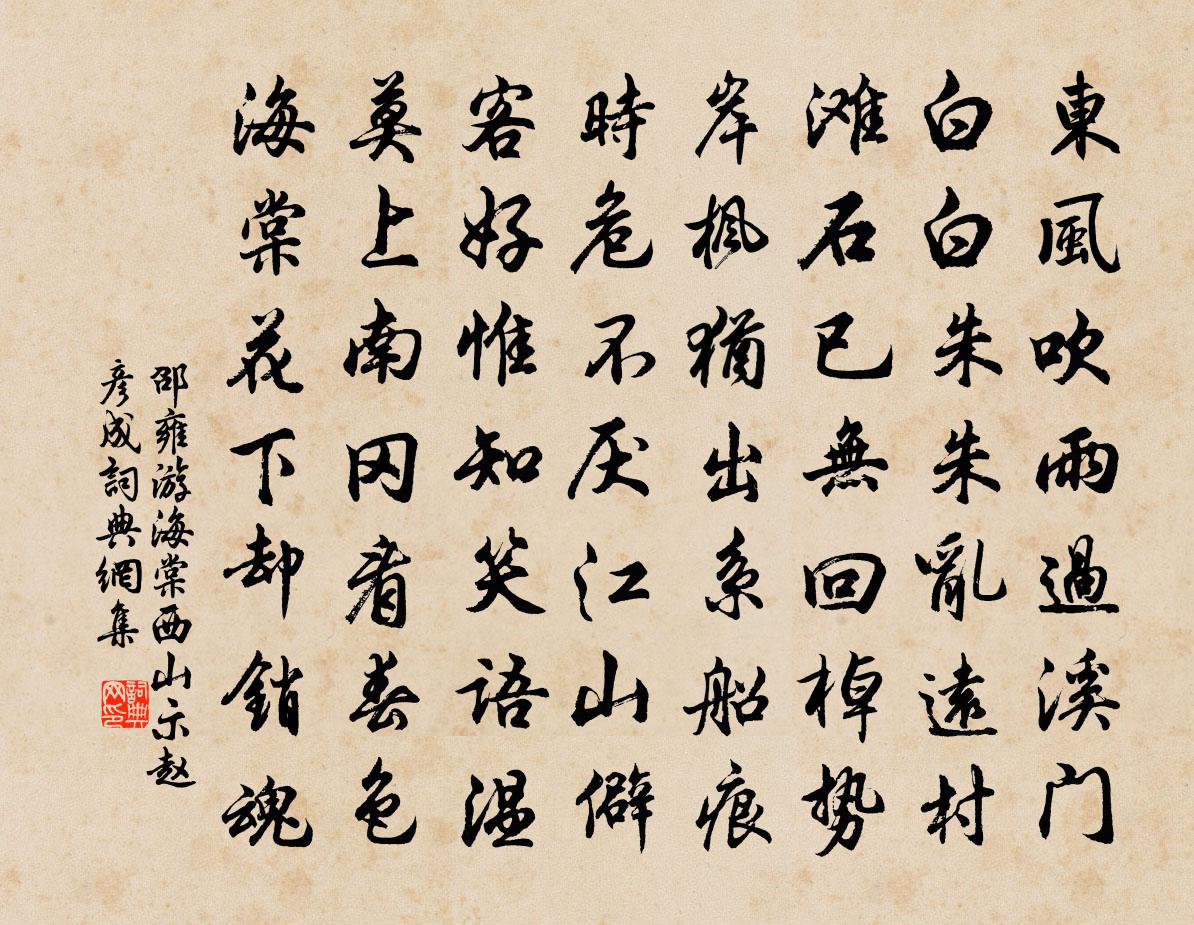 東風吹雨過溪门
白白朱朱亂遠村
滩石已無回棹势
岸楓猶出系船痕
時危不厌江山僻
客好惟知笑語温
莫上南冈看春色
海棠花下却銷魂
邵雍游海棠西山示赵
彦成詞典網集
詞典网印